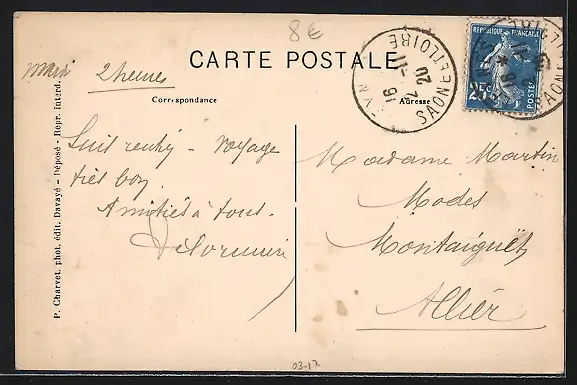 8€
CARTE POSTALE
Mardi 2 heures
Correspondance
Adresse
SAONE-ET-LOIRE
16 -11
20
REPUBLIQUE FRANÇAISE
25c
POSTES
Suis rentré - voyage
très bon.
Amitiés à tous.
Madame Martin
Modes
Montaiguët
Allier
P. Charvet, phot. édit. Davayé - Déposé - Repr. interd.
03-12